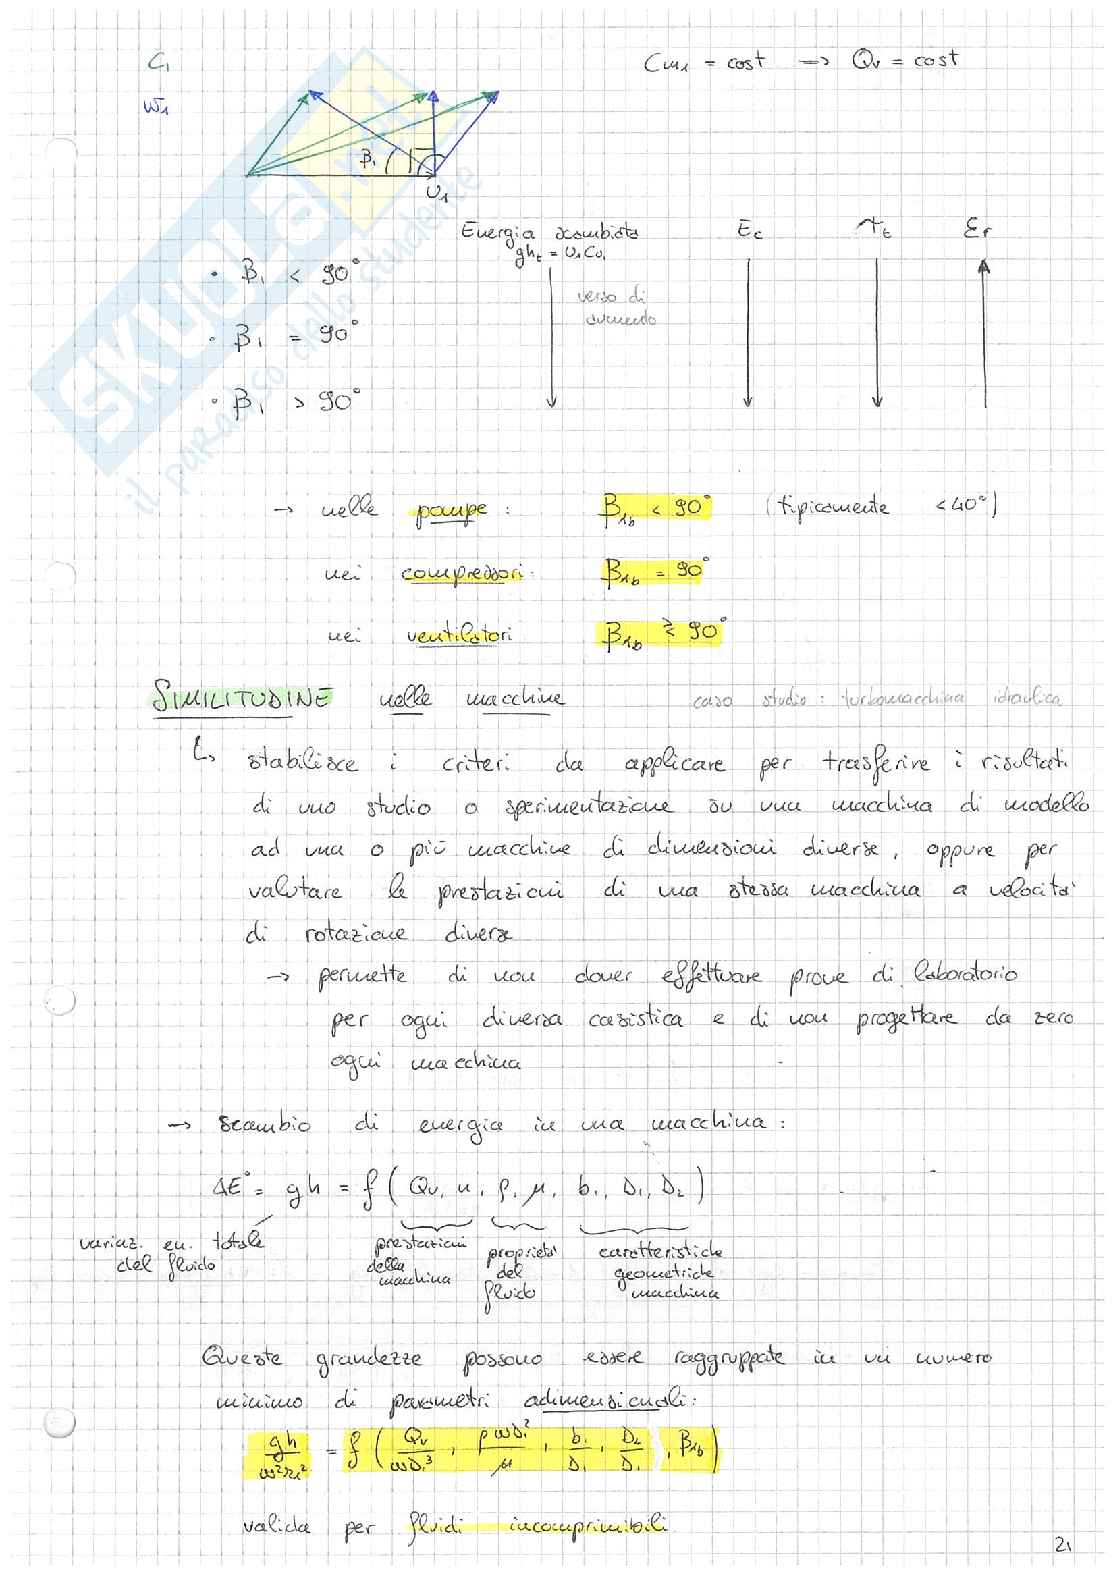 C₁
Cm₁ = cost → Qv = cost
w₁
β₁
U₁
Energia scambiata
gh_t = U₁Cu₁
Ec
Er
verso di
aumento
• β₁ < 90°
• β₁ = 90°
• β₁ > 90°
SKUOLA.net
il paradiso dello studente
→ nelle pompe : β₁b < 90° (tipicamente <40°)
nei compressori: β₁b = 90°
nei ventilatori β₁b ≷ 90°
SIMILITUDINE nelle macchine caso studio: turbomacchina idraulica
↳ stabilisce i criteri da applicare per trasferire i risultati
di uno studio o sperimentazione su una macchina di modello
ad una o più macchine di dimensioni diverse, oppure per
valutare le prestazioni di una stessa macchina a velocità
di rotazione diverse
→ permette di non dover effettuare prove di laboratorio
per ogni diversa casistica e di non progettare da zero
ogni macchina
→ scambio di energia in una macchina:
ΔE° = gh = f ( Qv, n, ρ, μ, b₁, D₁, D₂ )
variaz. en. totale
del fluido
prestazioni
della
macchina
proprietà
del
fluido
caratteristiche
geometriche
macchina
Queste grandezze possono essere raggruppate in un numero
minimo di parametri adimensionali:
gh/ω²r₁² = f ( Qv/ωD₁³ , ρωD₁²/μ , b₁/D₁ , D₂/D₁ , β₁b )
valida per fluidi incomprimibili
21